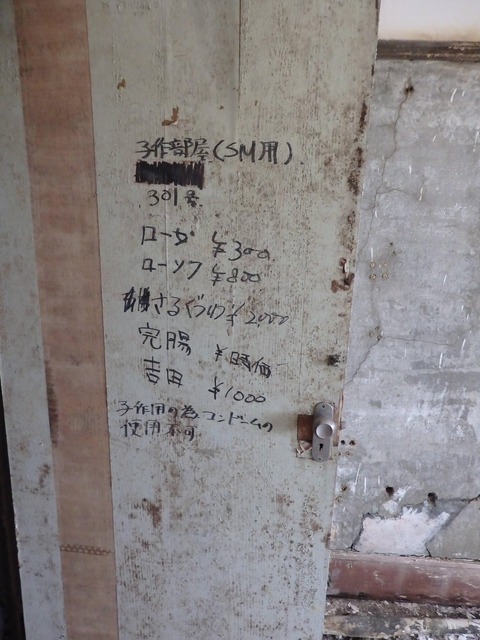 子作部屋(SM用)
301号
ローソク ¥300
ローソク ¥800
さるぐつわ ¥2,000
完腸 ¥時価
吉田 ¥1000
子作用の為コンドームの
使用不可